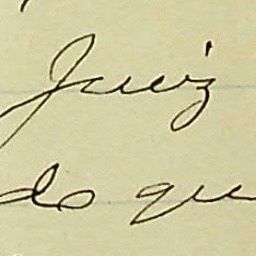 Juiz
do qu